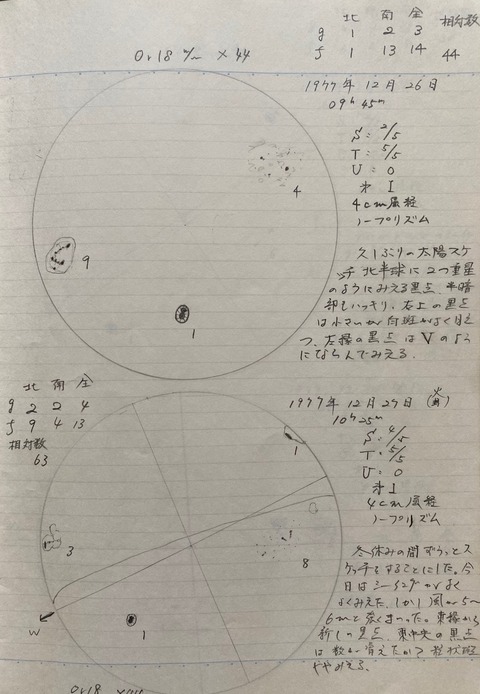 北 南 全
g 1 2 3 相対数
f 1 13 14 44
Or18 m/m ×44
1977年12月26日
09h 45m
S: 2/5
T: 5/5
U: 0
オ I
4cm屈経
ノープリズム
4
9
1
久しぶりの太陽スケ
ッチ 北半球に2つ重星
のようにみえる黒点、半暗
部もハッキリ、右上の黒点
は小さいが白斑がよく目立
つ、左縁の黒点はVのよう
にならんでみえる。
北 南 全
g 2 2 4
f 9 4 13
相対数
63
1977年12月27日 (火)
10h 25m
S: 4/5
T: 5/5
U: 0
オ I
4cm屈経
ノープリズム
1
3
8
1
W
冬休みの間ずうっとス
ケッチをすることにした。今
日はシーイングがよく
よくみえた、しかし風が5〜
6mと強くまった。東縁から
新しい黒点、東中央の黒点
は数が 消えたが 粒状斑
ややみえる。
Or18 ×44